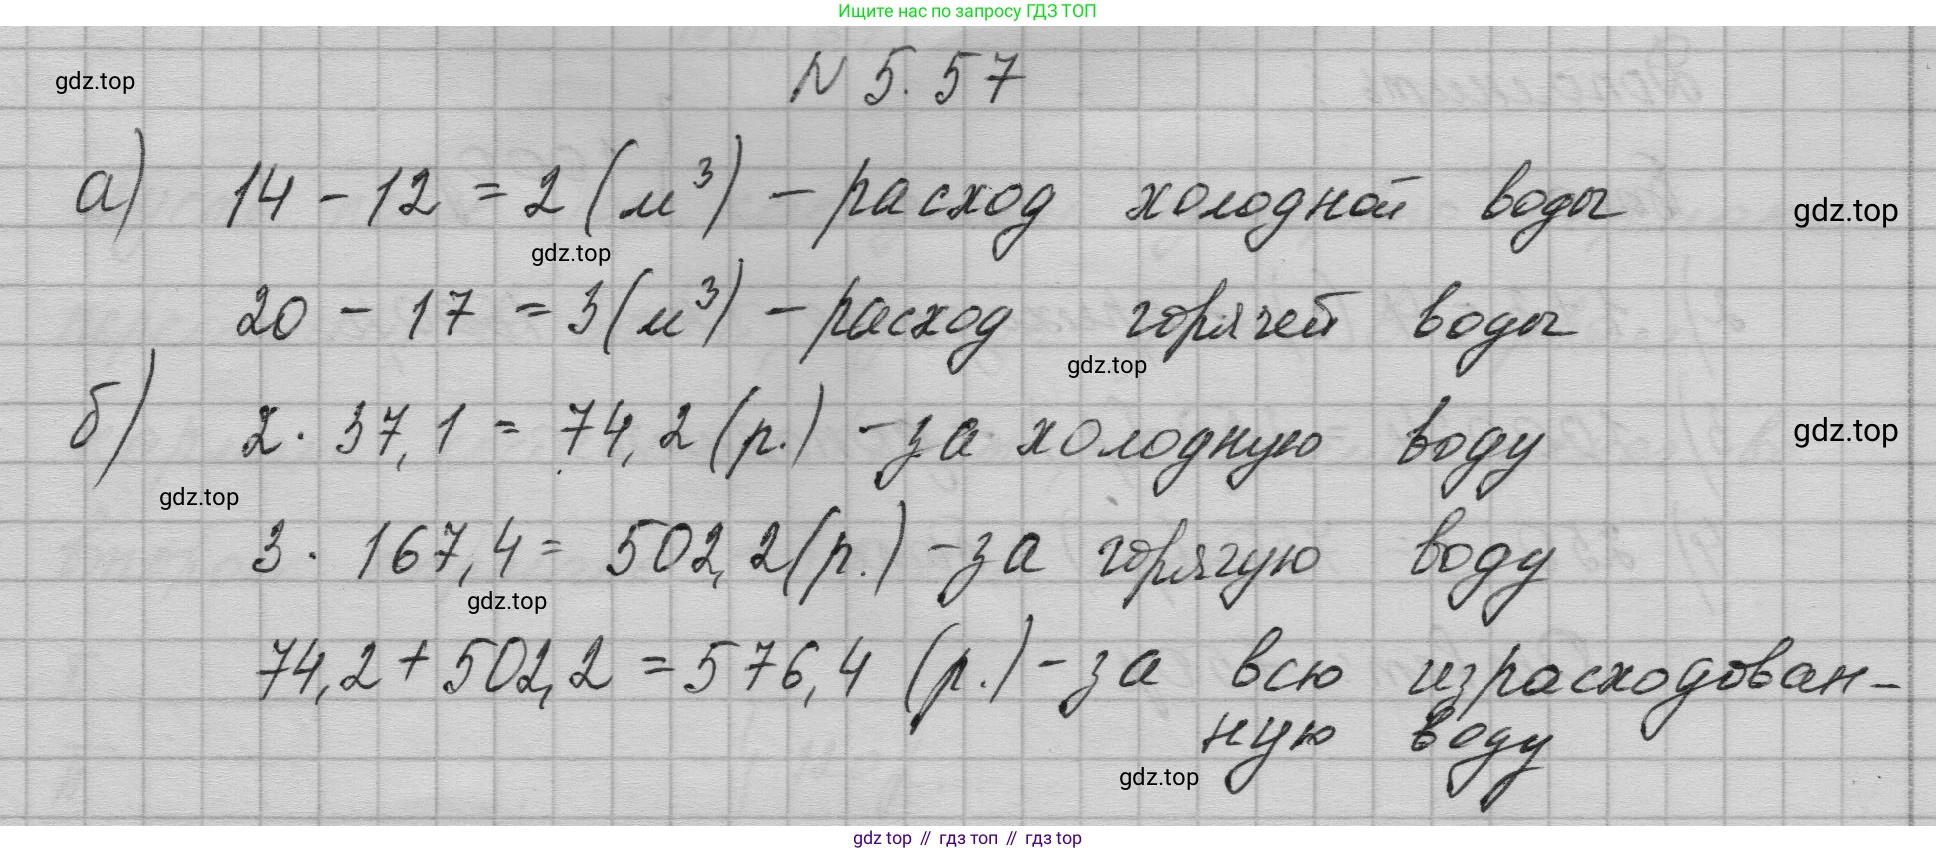 Ищите нас по запросу ГДЗ ТОП
N 5.57
gdz.top
а) 14 - 12 = 2 (м³) - расход холодной воды
gdz.top
gdz.top
20 - 17 = 3 (м³) - расход горячей воды
gdz.top
б) 2 · 37,1 = 74,2 (р.) - за холодную воду
gdz.top
gdz.top
3 · 167,4 = 502,2 (р.) - за горячую воду
gdz.top
74,2 + 502,2 = 576,4 (р.) - за всю израсходован-
ную воду
gdz.top
gdz top // гдз топ // gdz top